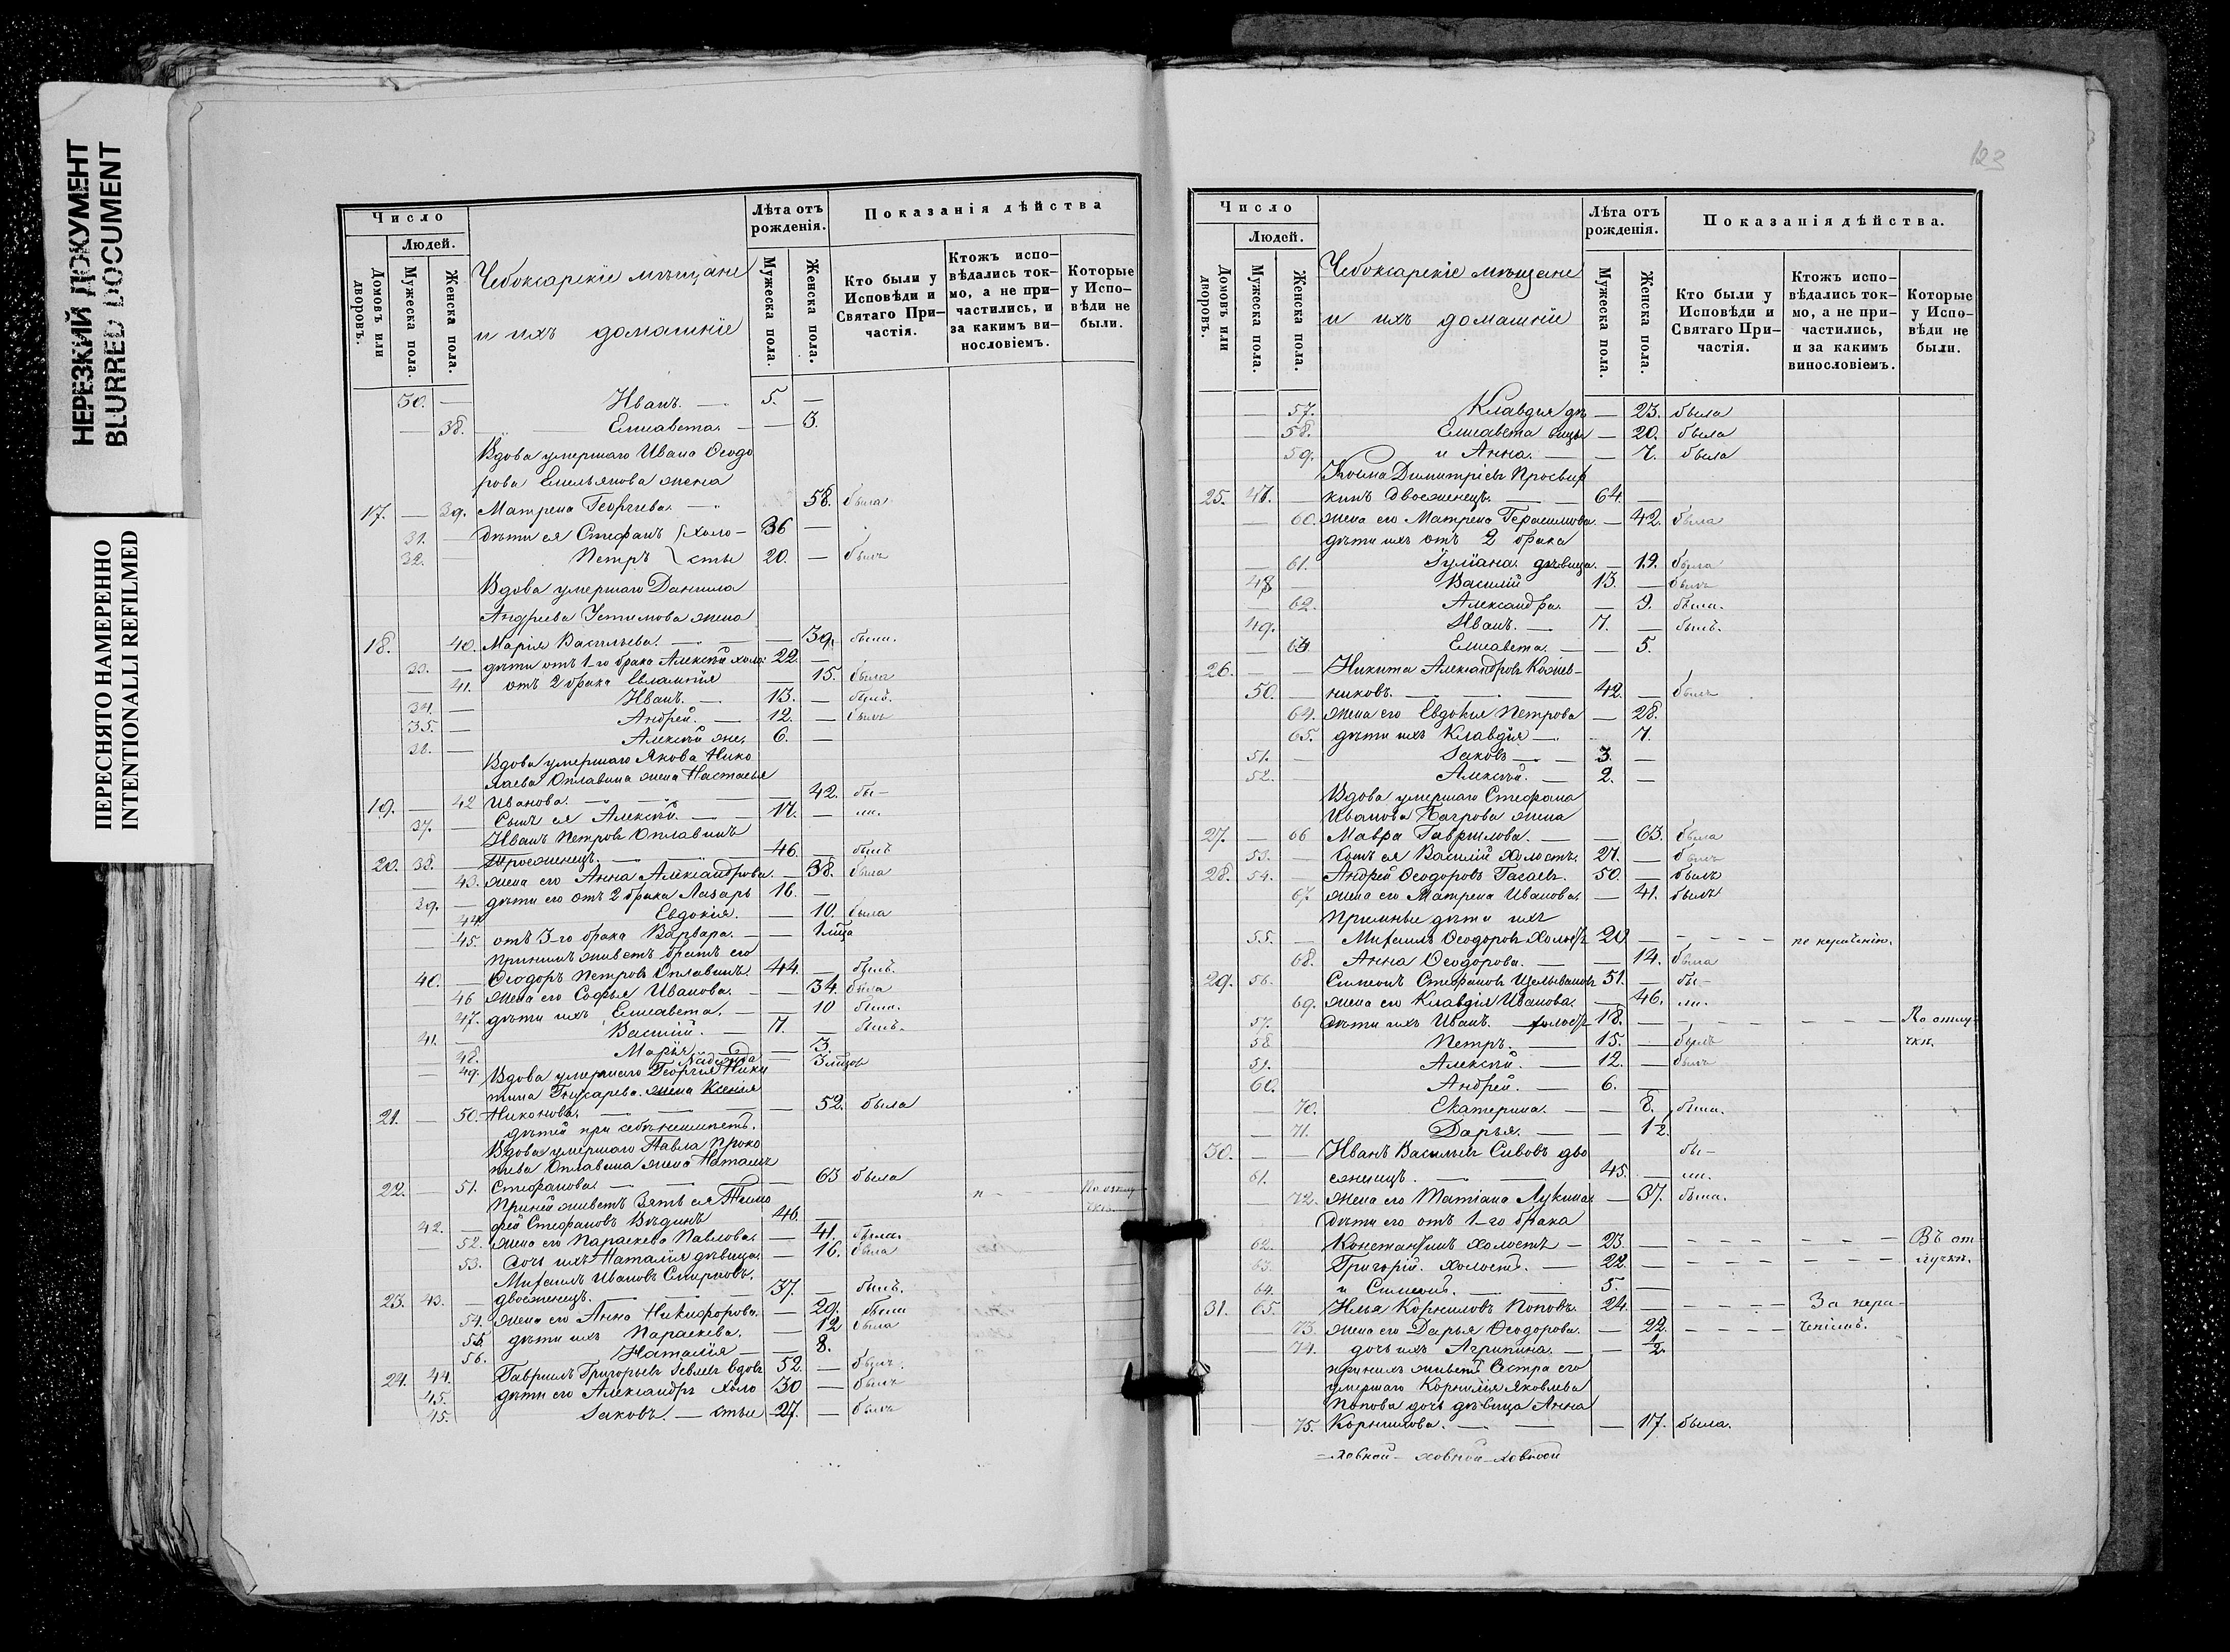 НЕРЕЗКИЙ ДОКУМЕНТ
BLURRED DOCUMENT
ПЕРЕСНЯТО НАМЕРЕННО
INTENTIONALLI REFILMED
Число
Людей.
Домовъ или дворовъ.
Мужеска пола.
Женска пола.
Чебоксарскіе мѣщане
и ихъ домашніе
Лѣта отъ рожденія.
Мужеска пола.
Женска пола.
Показанія дѣйства
Кто были у Исповѣди и Святаго При-
частія.
Ктожъ испо-
вѣдались ток-
мо, а не при-
частились, и
за какимъ ви-
нословіемъ.
Которые
у Испо-
вѣди не
были.
30. — Иванъ. — 5. —
— 38. Елисавета. — — 3.
Вдова умершаго Ивана Ѳеодо
рова Емельянова жена
17. — 39. Матрена Георгіева. — 58. была
31. — дѣти ея Стефанъ холо- 36 —
32. — Петръ сты 20. — былъ
Вдова умершаго Даниила
Андреева Устимова жена
18. 40. Марія Васильева. — — 39. была.
33. — дѣти отъ 1-го брака Алексѣй холо: 22. —
41. отъ 2 брака Евлампія — 15. была
34. — Иванъ. — 13. — былъ.
35. — Андрей. — 12. — былъ
36. — Алексѣй же. 6. —
Вдова умершаго Якова Нико
лаева Оплавина жена Настасья
19. — 42 Иванова. — — — 42. бы-
37. — Сынъ ея Алексѣй. — 17. — ли.
Иванъ Петровъ Оплавинъ
20. 38. — Троеженецъ. — — 46. — былъ
43. жена его Анна Александрова. — 38. была
39. — дѣти его отъ 2 брака Лазарь 16. —
44. Евдокія. — 10. была
— 45. отъ 3-го брака Варвара. — — 1 мца
При нихъ живетъ братъ его
40. — Ѳеодоръ Петровъ Оплавинъ 44. — былъ.
46 жена его Софья Иванова. — — 34. была
47. дѣти ихъ Елисавета. — — 10 была.
41. — Василій. — 7. — былъ.
48. Марія — — 3.
49. Надежда 3 мѣсяц
Вдова умершаго Георгія Ники
тина Гнусарева жена Ксенія
21. — 50. Никонова. — — — 52. была
дѣтей при себѣ неимѣетъ.
Вдова умершаго Павла Проко
пьева Оплавина жена Наталья
22. — 51. Стефанова. — — — 63 была
При ней живетъ Зять ея Тимо
42. — фей Стефановъ Вѣдинъ 46. — По отлу-
чкѣ.
52. жена его Параскева Павлова. — 41. была.
53. дочь ихъ Наталія дѣвица. — 16. была
Михаилъ Ивановъ Смирновъ.
23. 43. — двоеженецъ. — — 37. — былъ.
54. жена его Анна Никифорова. — 29. была
55. дѣти ихъ Параскева. — 12 была
56. Наталія — — 8.
24. 44. Гавріилъ Григорьевъ вдовъ 52. — былъ.
45. дѣти его Александръ холо 30 — былъ
45. Іаковъ. — стые 27. — былъ
123
Число
Людей.
Домовъ или дворовъ.
Мужеска пола.
Женска пола.
Чебоксарскіе мѣщане
и ихъ домашніе
Лѣта отъ рожденія.
Мужеска пола.
Женска пола.
Показанія дѣйства.
Кто были у Исповѣди и Святаго При-
частія.
Ктожъ испо-
вѣдались ток-
мо, а не при-
частились,
и за какимъ
винословіемъ.
Которые
у Испо-
вѣди не
были.
— 57. Клавдія дѣ — 23. была
— 58. Елисавета вицы — 20. была
59. и Анна. — — 7. была
Косма Димитріевъ Просвир
25. 47. — кинъ двоеженецъ. — — 64. —
— 60. жена его Матрена Герасимова. — 42. была
дѣти ихъ отъ 2 брака
— 61. Іуліана дѣвица. — 19. была
48 Василій 13. — былъ
— 62. Александра. — 9. была.
49. Иванъ. — 7. — былъ.
— 63 Елисавета. — — 5.
26. — — Никита Александровъ Кожев-
50. — никовъ. — — — 42. — былъ
64. жена его Евдокія Петрова — 28.
65. дѣти ихъ Клавдія — 7.
51. — Іаковъ — — 3. —
52. Алексѣй. — 2. —
Вдова умершаго Стефана
Иванова Багрова жена
27. — 66 Мавра Гаврилова. — — 63. была
53. — Сынъ ея Василій холостъ. 27. — былъ
28. 54. — Андрей Ѳеодоровъ 50. — былъ
67. жена его Матрена Иванова. — 41. былъ
Пріемные дѣти ихъ
55. — Михаилъ Ѳеодоровъ холостъ 20 — - - - - по нераченію.
68. Анна Ѳеодорова. — — 14. была
29. 56. Симеонъ Стефановъ 51. — бы-
69. жена его Клавдія Иванова. — 46. ли.
57. дѣти ихъ Иванъ. — холостъ 18. — - - - - По отлу-
чкѣ.
58 Петръ. — 15. — былъ
59. Алексѣй. — 12. — былъ
60. Андрей. — 6. —
— 70. Екатерина. — — 8. была.
— 71. Дарья. — — 1/2.
30. — — Иванъ Васильевъ Сивовъ дво бы-
61. еженецъ. — — 45. — ли.
— 72. жена его Татіана Лукина — 37. была.
дѣти его отъ 1-го брака
62. Константинъ холостъ — 23. — - - - - Въ от-
63. Григорій. холостъ. — 22. — - - - - лучкѣ.
64. и Симеонъ. — 5. —
31. 65. Илья Корниловъ Поповъ. 24. — - - - За нера-
— 73. жена его Дарья Ѳеодорова. — 22. - - - - ченіемъ.
— 74. дочь ихъ Агрипина. — — 1/2.
при нихъ живетъ Сестра его
умершаго Корнилія Яковлева
Попова дочь дѣвица Анна
— 75. Корнилова. — — — 17. была.
ховной- ховной-ховной